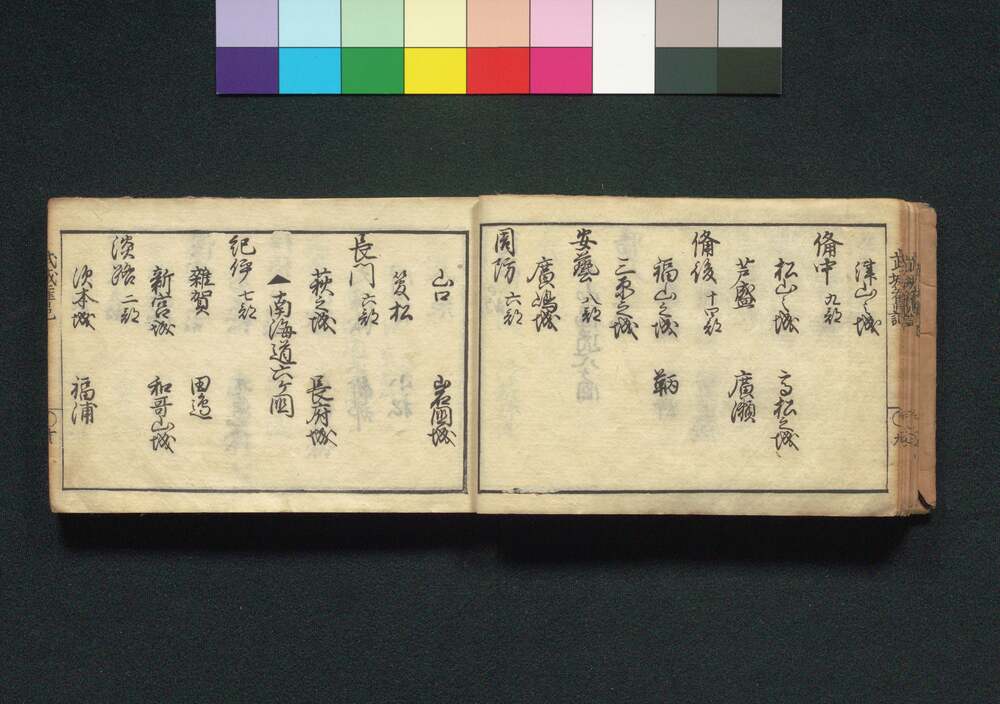 津山之城
備中 九郡
松山之城 高松之城
芦盛 廣瀬
備後 十四郡
福山之城 鞆
三原之城
安藝 八郡
廣嶋城
周防 六郡
山口 岩国城
笠松
長門 六郡
萩之城 長府城
▲南海道六ケ国
紀伊 七郡
雜賀 田邉
新宮城 和哥山城
淡路 二郡
須本城 福浦